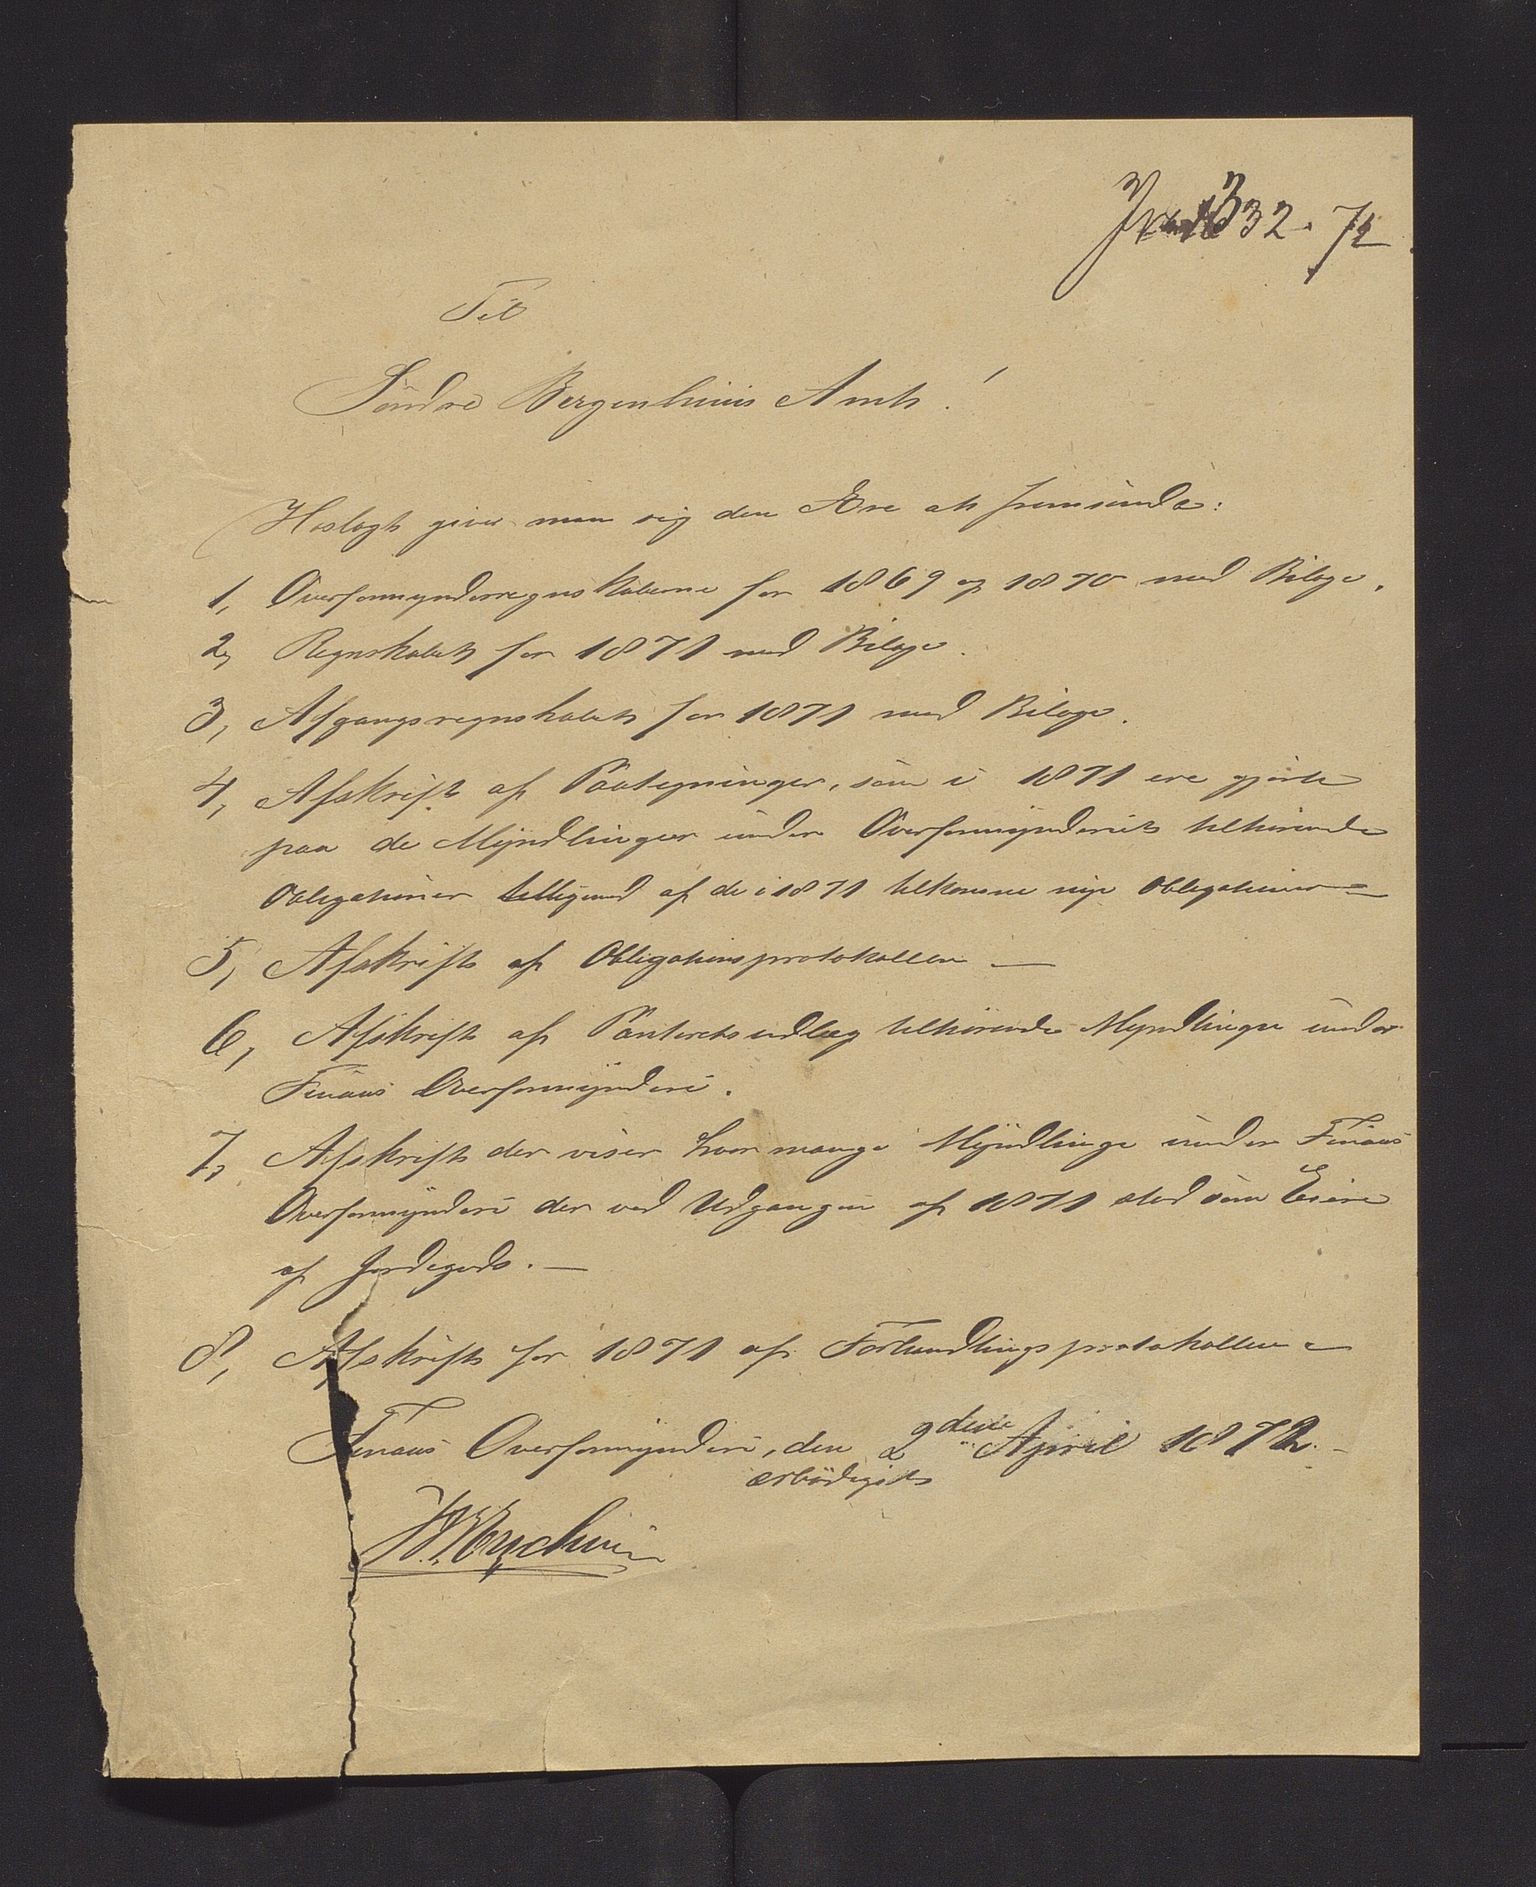 332. 72
Til
Søndre Bergenhuus Amt!
Hoslagt giver man sig den Ære at fremsende:
1, Overformynderregnskaberne for 1869 og 1870 med Bilage.
2, Regnskabet for 1871 med Bilage.
3, Afgangsregnskabet for 1871 med Bilage.
4, Afskrift af Paategninger, som i 1871 ere gjorte
paa de Myndlinger under Overformynderiet tilhørende
Obligationer tilligemed af de i 1871 tilkomne nye Obligationer —
5, Afskrift af Obligationsprotokollen —
6, Afskrift af Panteretsudlæg tilhørende Myndlinge under
Finaas Overformynderi.
7, Afskrift der viser hvor mange Myndlinge under Finaas
Overformynderi der ved Udgangen af 1871 stod som Eiere
af Jordegods. —
8, Afskrift for 1871 af Forhandlingsprotokollen —
Finaas Overformynderi, den 2den April 1872. —
ærbødigst